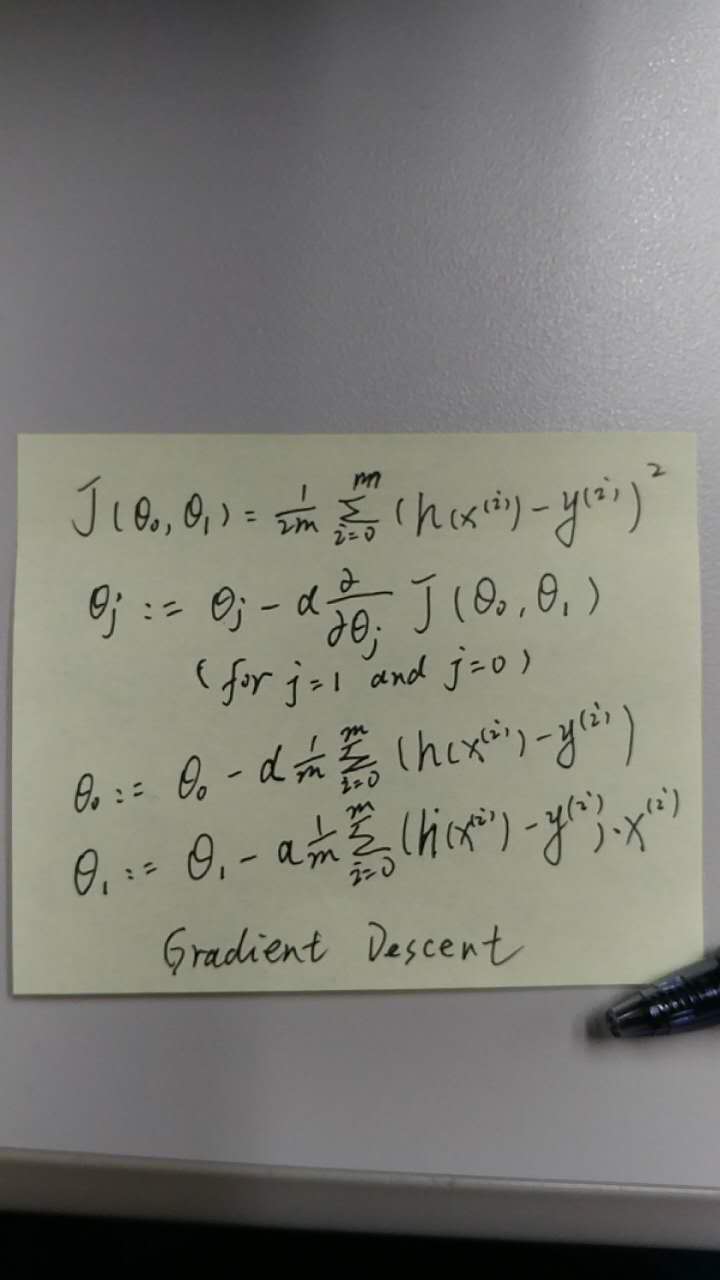 J(θ₀, θ₁) = 1/2m ∑_{i=0}^{m} (h(x^{(i)}) - y^{(i)})²
θⱼ := θⱼ - α ∂/∂θⱼ J(θ₀, θ₁)
(for j=1 and j=0)
θ₀ := θ₀ - α 1/m ∑_{i=0}^{m} (h(x^{(i)}) - y^{(i)})
θ₁ := θ₁ - α 1/m ∑_{i=0}^{m} (h(x^{(i)}) - y^{(i)})·x^{(i)}
Gradient Descent